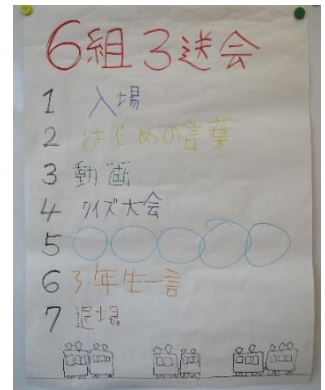 6組3送会
1 入場
2 はじめの言葉
3 動画
4 クイズ大会
5 ○○○○○
6 3年生一言
7 退場